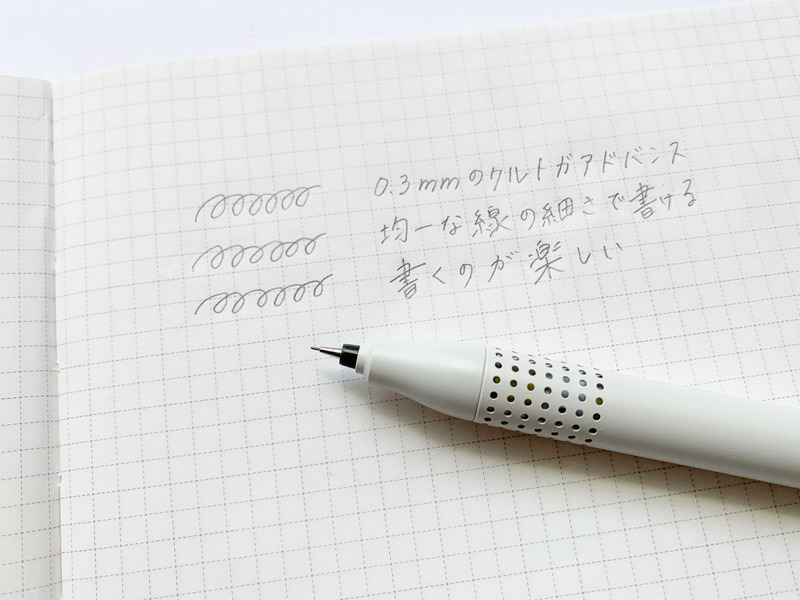 0.3mmのクルトガアドバンス
均一な線の細さで書ける
書くのが楽しい